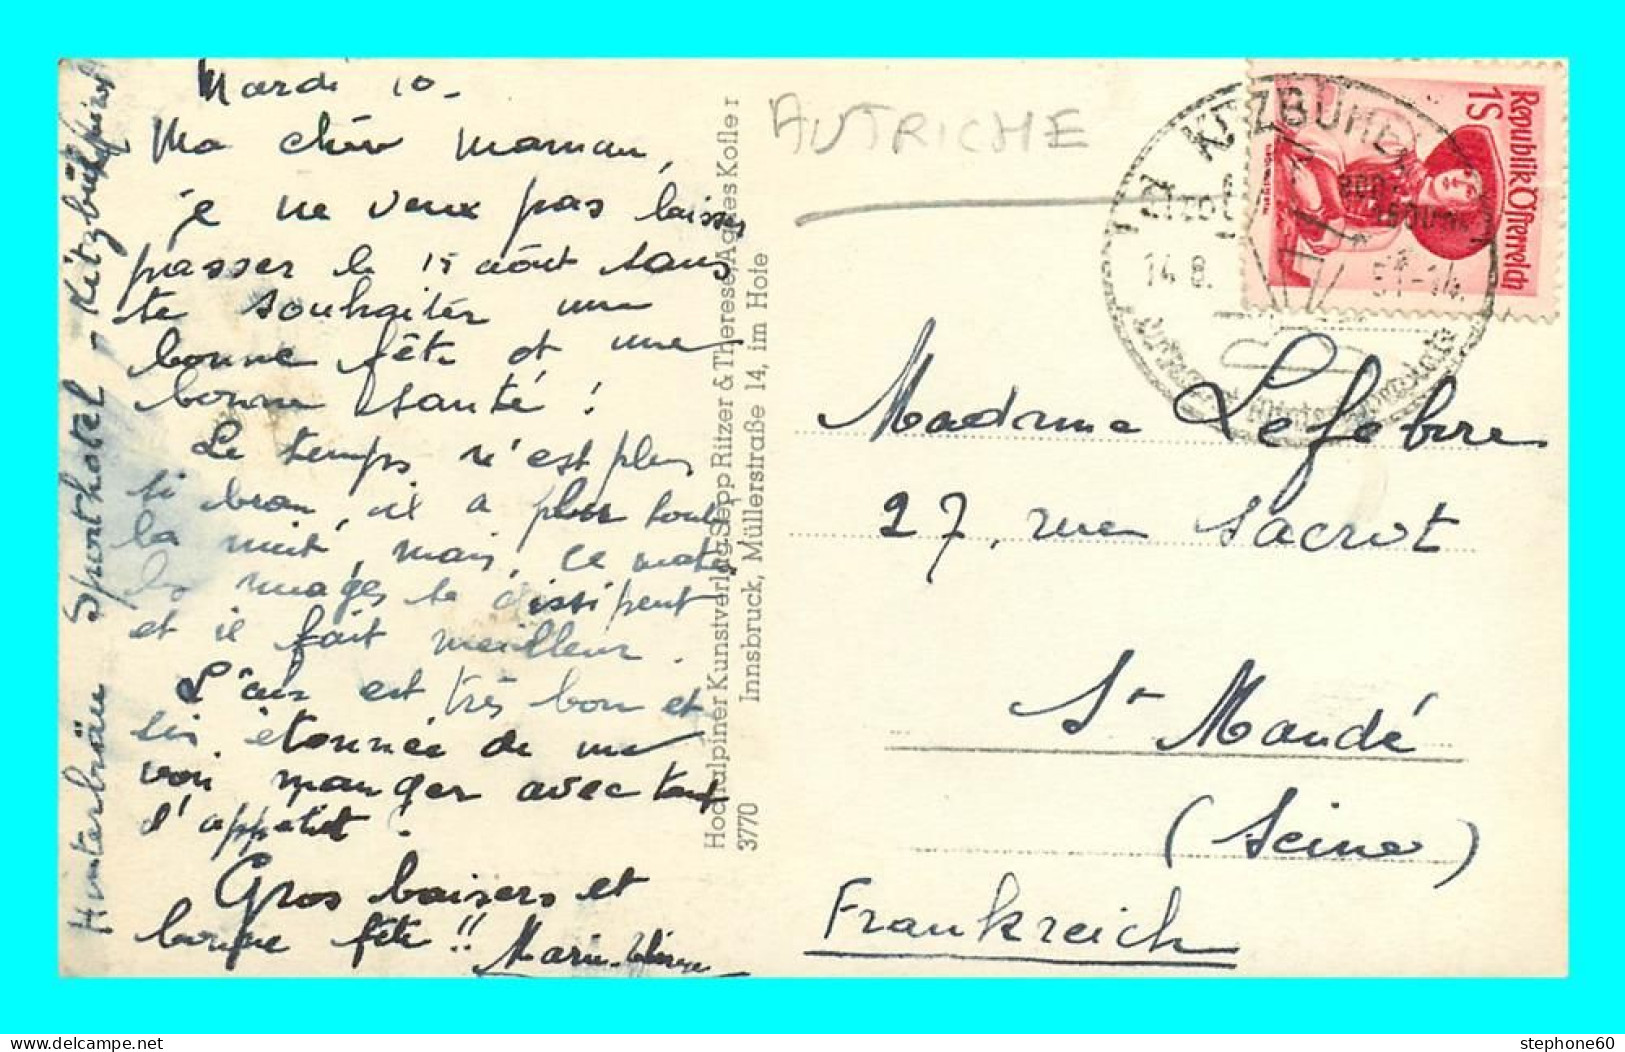 Mardi 10_
Ma chère maman,
je ne veux pas laisser
passer le 15 août sans
te souhaiter une
bonne fête et une
bonne santé !
Le temps n'est plus
si beau, il a plu toute
la nuit, mais, ce matin
les nuages se dissipent
et il fait meilleur.
L'air est très bon et
suis étonnée de me
voir manger avec tant
d'appétit.
Gros baisers et
bonne fête !!
Hinterbräu Sporthotel - Kitzbühel
Hochalpiner Kunstverlag Sepp Ritzer & Therese, Agnes Kofler
3770 Innsbruck, Müllerstraße 14, im Hofe
AUTRICHE
KITZBÜHEL
14.8.51-14.
Republik Österreich
1S
Madame Lefebvre
27, rue Sacrot
St Mandé
(Seine)
Frankreich
stephone60